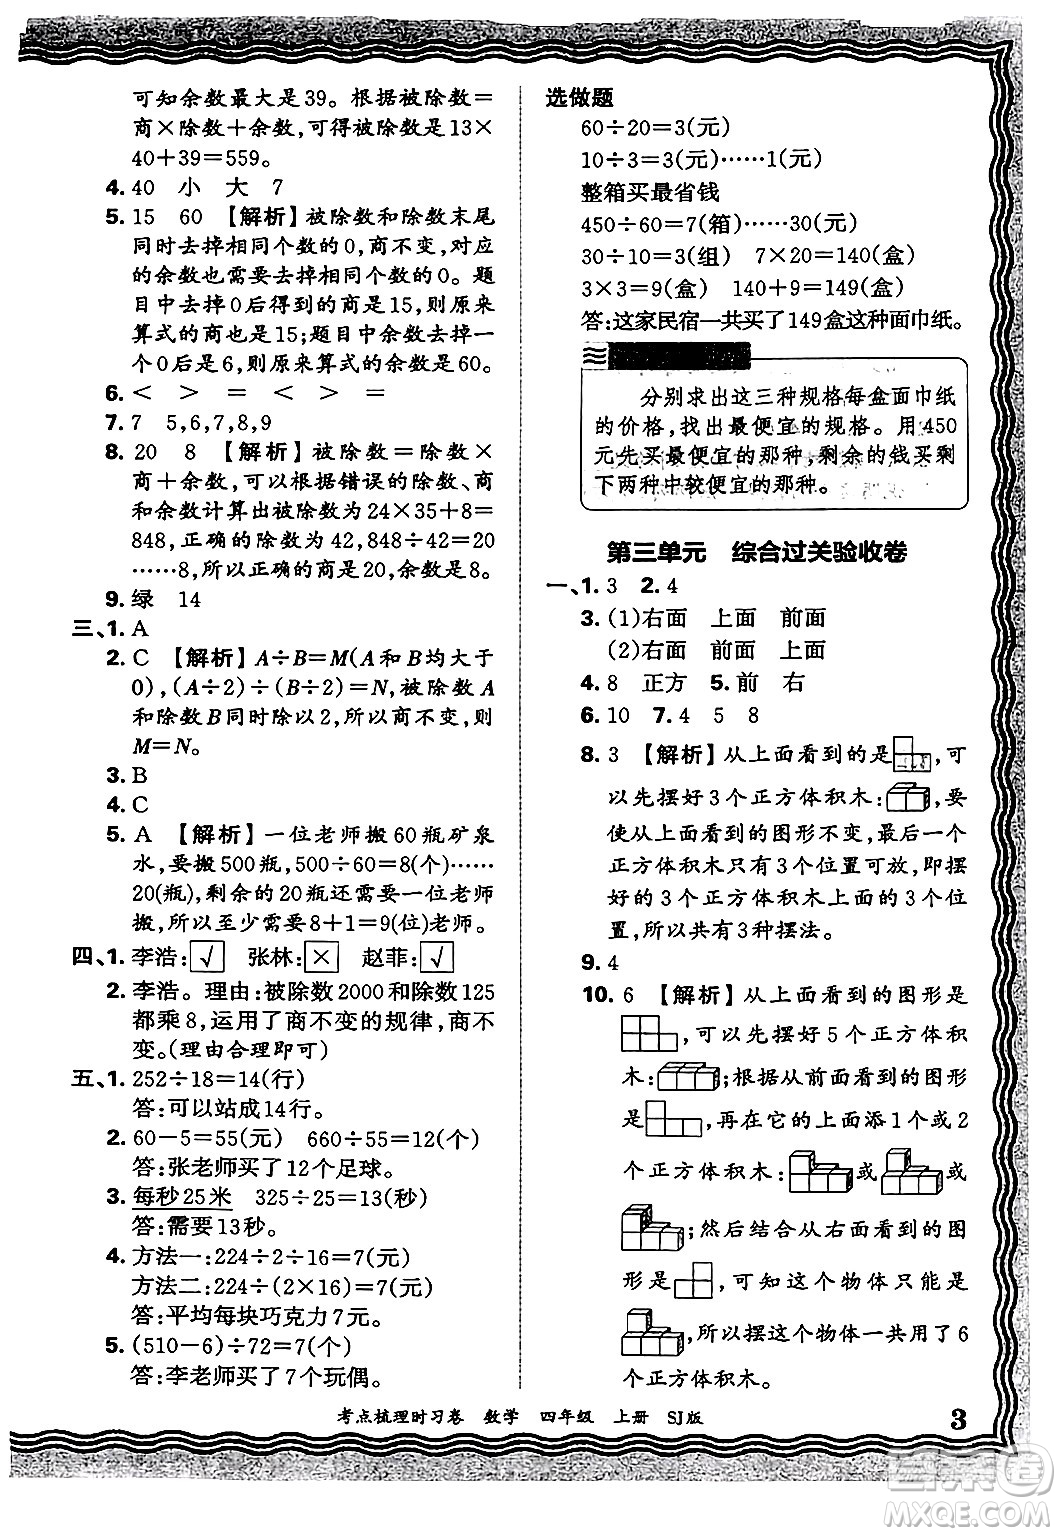 可知余数最大是39。根据被除数=
商×除数+余数,可得被除数是13×
40+39=559。
4. 40 小 大 7
5. 15 60 【解析】被除数和除数末尾
同时去掉相同个数的0,商不变,对应
的余数也需要去掉相同个数的0。题
目中去掉0后得到的商是15,则原来
算式的商也是15;题目中余数去掉一
个0后是6,则原来算式的余数是60。
6. < > = < > =
7. 7 5,6,7,8,9
8. 20 8 【解析】被除数=除数×
商+余数,可以根据错误的除数、商
和余数计算出被除数为24×35+8=
848,正确的除数为42,848÷42=20
……8,所以正确的商是20,余数是8。
9. 绿 14
三、1. A
2. C 【解析】A÷B=M(A和B均大于
0),(A÷2)÷(B÷2)=N,被除数A
和除数B同时除以2,所以商不变,则
M=N。
3. B
4. C
5. A 【解析】一位老师搬60瓶矿泉
水,要搬500瓶,500÷60=8(个)……
20(瓶),剩余的20瓶还需要一位老师
搬,所以至少需要8+1=9(位)老师。
四、1. 李浩:√ 张林:× 赵菲:√
2. 李浩。理由:被除数2000和除数125
都乘8,运用了商不变的规律,商不
变。(理由合理即可)
五、1. 252÷18=14(行)
答:可以站成14行。
2. 60-5=55(元) 660÷55=12(个)
答:张老师买了12个足球。
3. 每秒25米 325÷25=13(秒)
答:需要13秒。
4. 方法一:224÷2÷16=7(元)
方法二:224÷(2×16)=7(元)
答:平均每块巧克力7元。
5. (510-6)÷72=7(个)
答:李老师买了7个玩偶。
选做题
60÷20=3(元)
10÷3=3(元)……1(元)
整箱买最省钱
450÷60=7(箱)……30(元)
30÷10=3(组) 7×20=140(盒)
3×3=9(盒) 140+9=149(盒)
答:这家民宿一共买了149盒这种面巾纸。
分别求出这三种规格每盒面巾纸
的价格,找出最便宜的规格。用450
元先买最便宜的那种,剩余的钱买剩
下两种中较便宜的那种。
第三单元 综合过关验收卷
一、1. 3 2. 4
3. (1)右面 上面 前面
(2)右面 前面 上面
4. 8 正方 5. 前 右
6. 10 7. 4 5 8
8. 3 【解析】从上面看到的是,可
以先摆好3个正方体积木:,要
使从上面看到的图形不变,最后一个
正方体积木只有3个位置可放,即摆
好的3个正方体积木上面的3个位
置,所以共有3种摆法。
9. 4
10. 6 【解析】从上面看到的图形是
,可以先摆好5个正方体积
木:;根据从前面看到的图形
是,再在它的上面添1个或2
个正方体积木:或或
;然后结合从右面看到的图
形是,可知这个物体只能是
,所以摆这个物体一共用了6
个正方体积木。
考点梳理时习卷 数学 四年级 上册 SJ版
3
答案卷
MXQE.COM